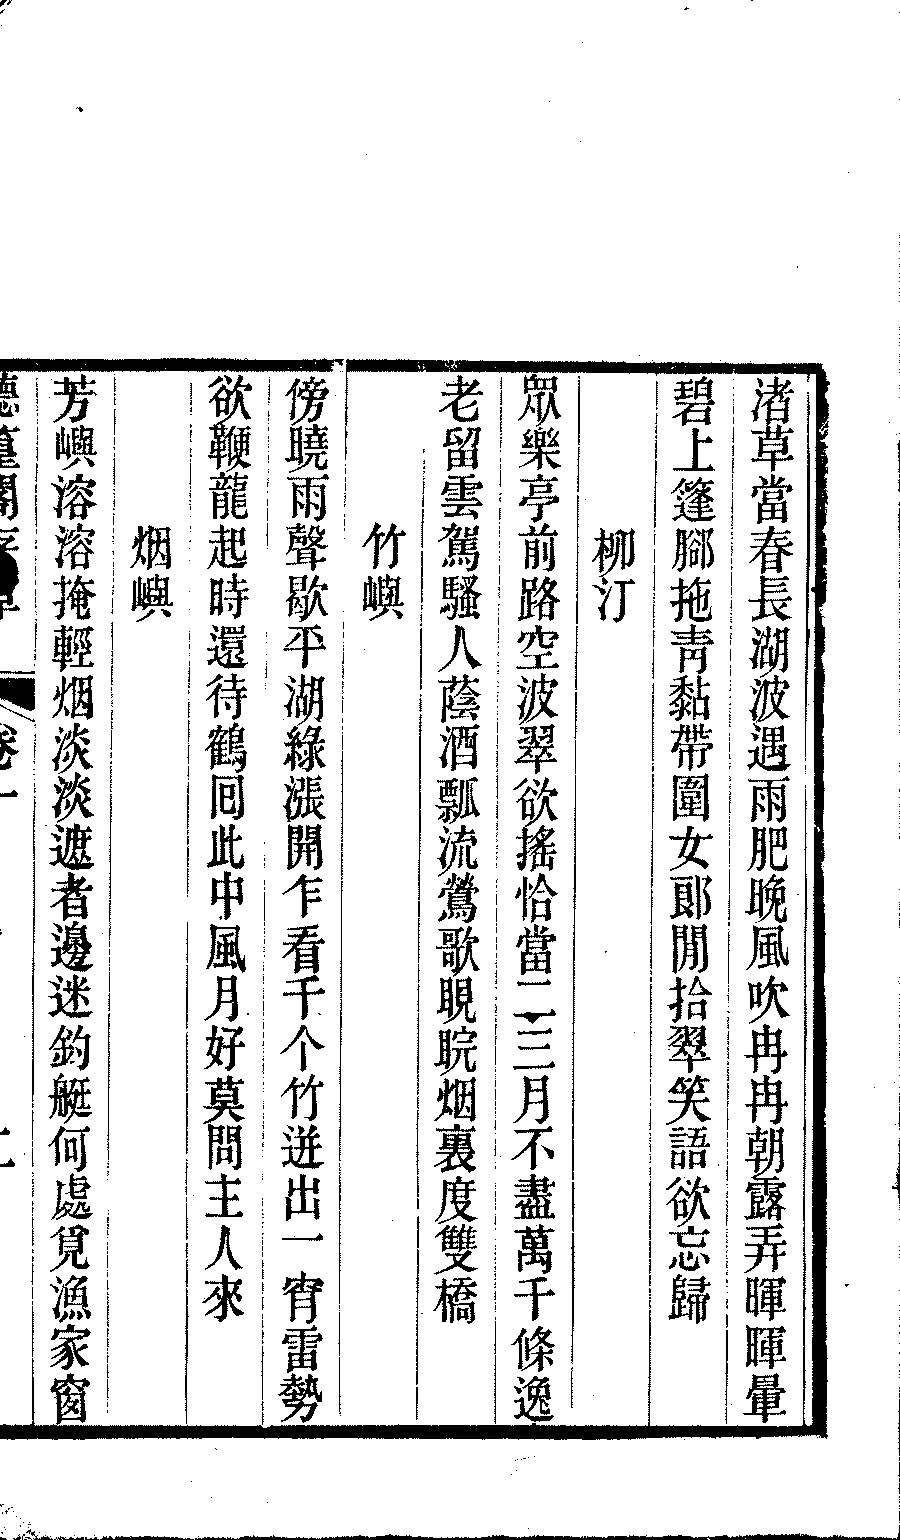 渚草當春長湖波遇雨肥晚風吹冉冉朝露弄暉暉暈
碧上篷腳拖靑黏帶圍女郞閒拾翠笑語欲忘歸
柳汀
眾樂亭前路空波翠欲搖恰當二三月不盡萬千條逸
老留雲駕騷人蔭酒瓢流鶯歌睍睆烟裏度雙橋
竹嶼
傍曉雨聲歇平湖綠漲開乍看千个竹迸出一宵雷勢
欲鞭龍起時還待鶴囘此中風月好莫問主人來
烟嶼
芳嶼溶溶掩輕烟淡淡遮者邊迷釣艇何處覓漁家窗
卷一